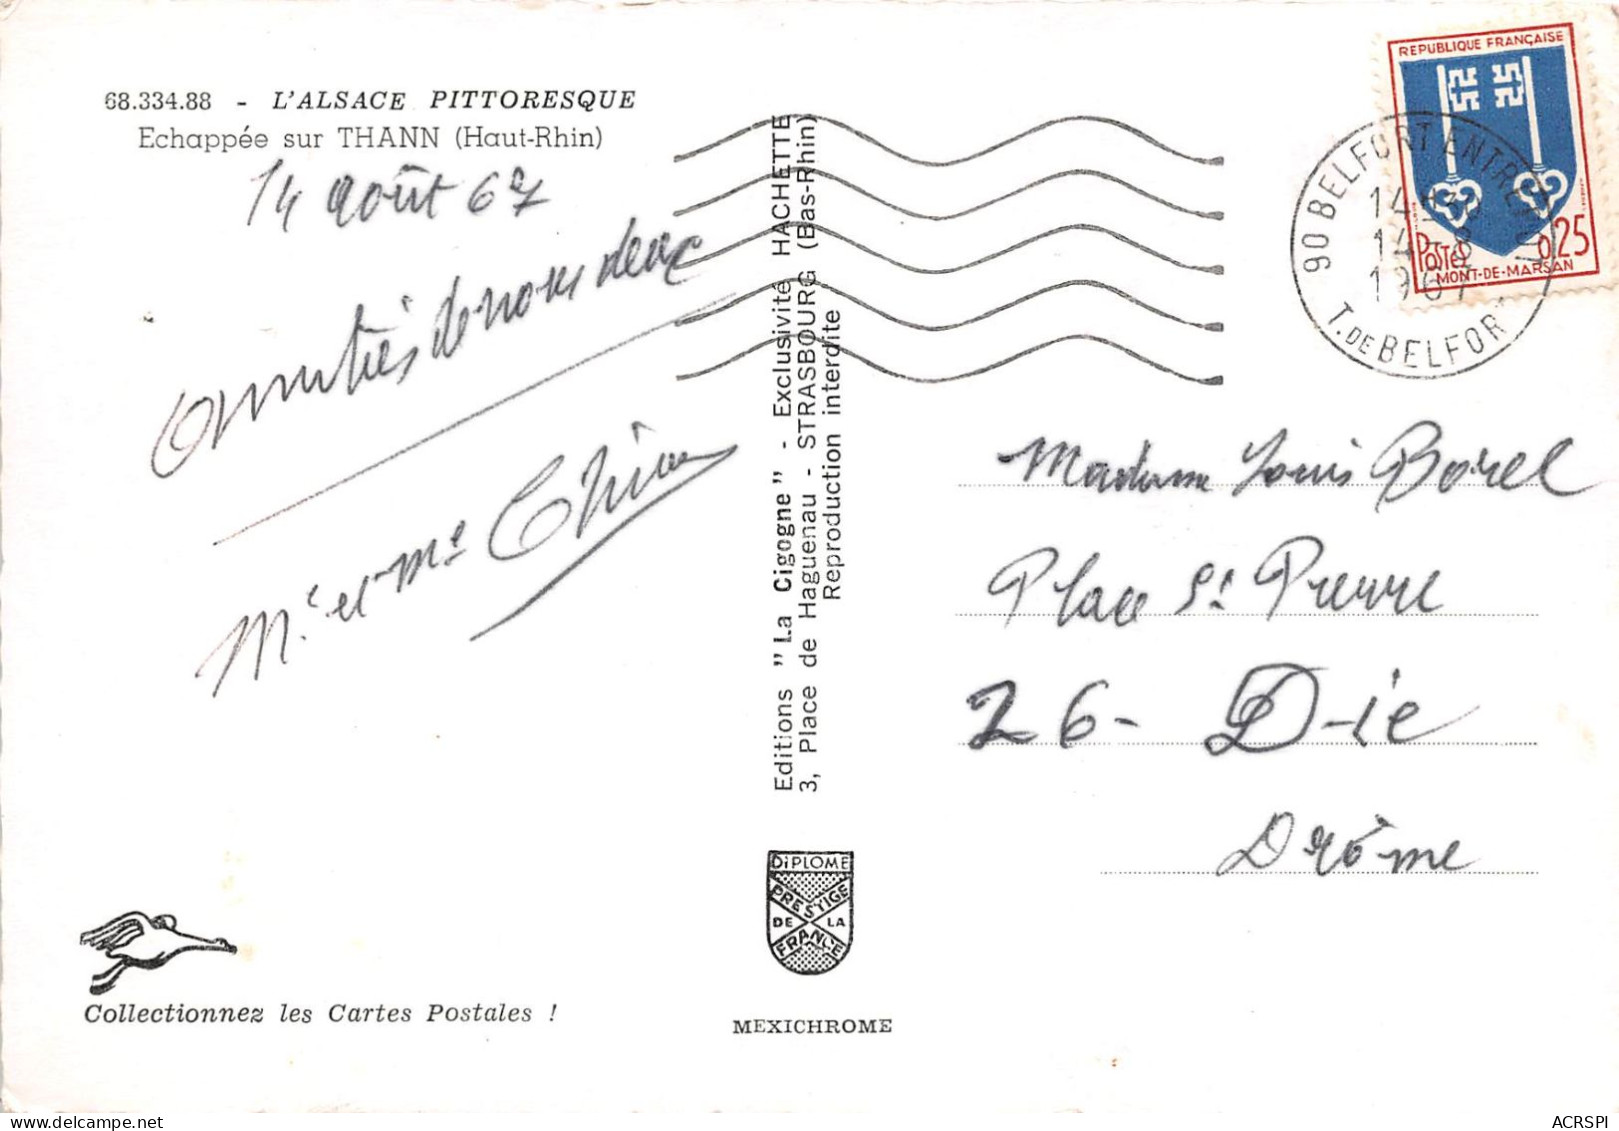 68.334.88 - L'ALSACE PITTORESQUE
Echappée sur THANN (Haut-Rhin)
14 août 67
amitiés de nous deux
Mr et Me
Editions "La Cigogne" - Exclusivité HACHETTE
3, Place de Haguenau - STRASBOURG (Bas-Rhin)
Reproduction interdite
REPUBLIQUE FRANÇAISE
POSTES 0,25
MONT-DE-MARSAN
90 BELFORT ENTREPOT
14H30
14-8
1967
T. DE BELFORT
Madame Louis Borel
Place St Pierre
26- Die
Drôme
DIPLOME
PRESTIGE
DE LA
FRANCE
Collectionnez les Cartes Postales !
MEXICHROME
ACRSPI